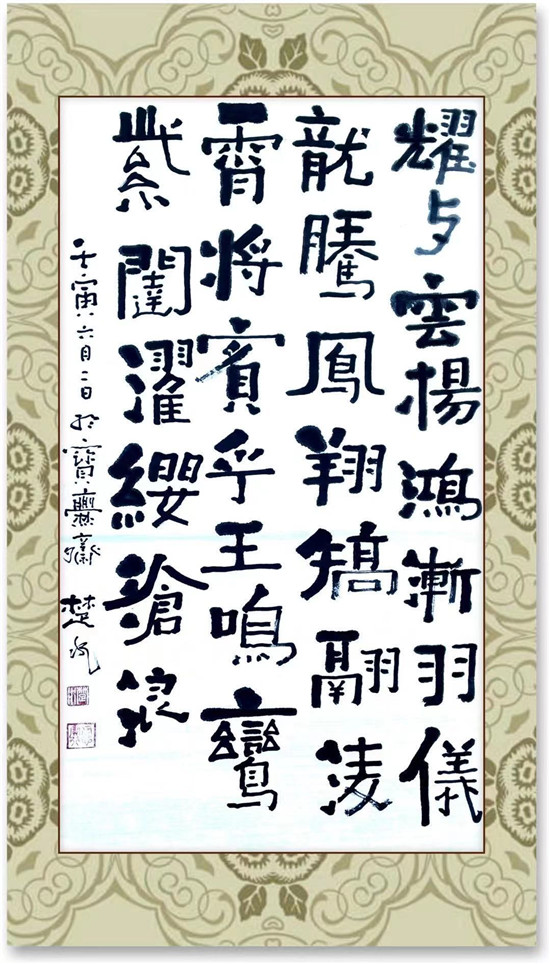 耀与雲揚鴻漸羽儀
龍騰鳳翔矯翮凌
霄將賓乎王鳴鸞
紫闥濯纓滄浪
壬寅六月二日於寶爨齋 楚